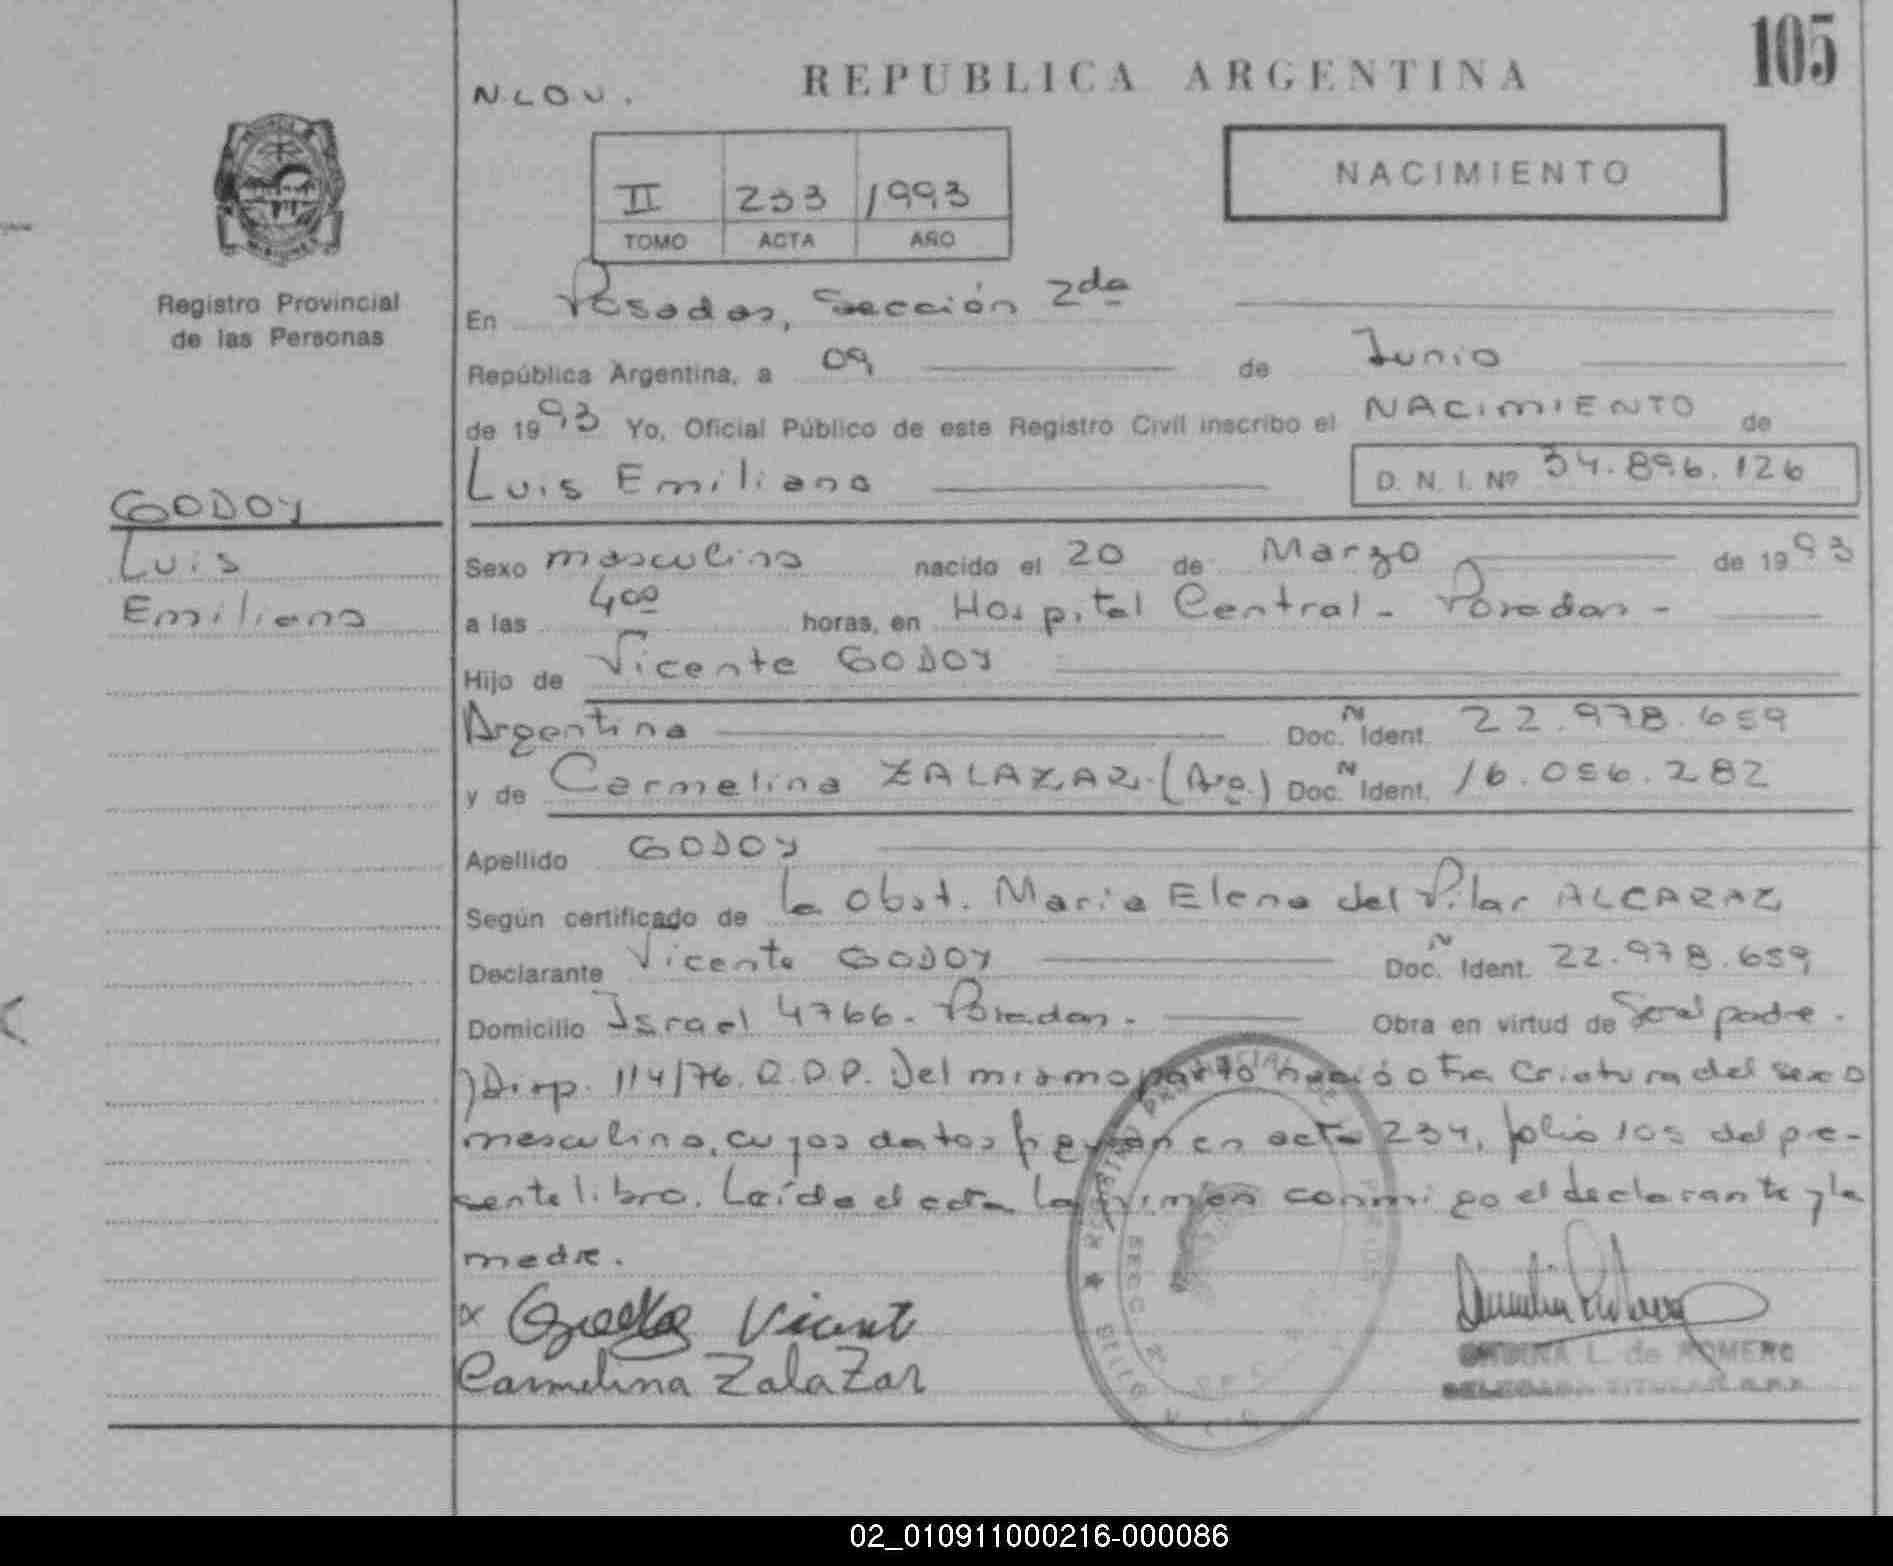 105
N.LOU.
REPUBLICA ARGENTINA
II 233 1993
TOMO ACTA AÑO
NACIMIENTO
Registro Provincial
de las Personas
En Posadas, Sección 2da
República Argentina, a 09 de Junio
de 1993 Yo, Oficial Público de este Registro Civil inscribo el NACIMIENTO de
Luis Emiliano D. N. I. Nº 34.896.126
GODOY
Luis
Emiliano
Sexo masculino nacido el 20 de Marzo de 1993
a las 4 00 horas, en Hospital Central - Posadas -
Hijo de Vicente GODOY
Argentina Doc. Ñ Ident. 22.978.659
y de Carmelina ZALAZAR. (Arg.) Doc. Ñ Ident. 16.056.282
Apellido GODOY
Según certificado de la Obst. Maria Elena del Pilar ALCARAZ
Declarante Vicente GODOY Doc. Ñ Ident. 22.978.659
Domicilio Israel 4766. Posadas. Obra en virtud de Ser el padre.
)Disp. 114/76. R.P.P. Del mismo parto nació otra criatura del sexo
masculino, cuyos datos figuran en acta 234, folio 105 del pre-
sente libro. Leída el acta la firman conmigo el declarante y la
madre.
x Godoy Vicente
Carmelina ZalaZar
L. de ROMERO
DELEGADA TITULAR R.P.P.
REGISTRO PROVINCIAL DE LAS PERSONAS
SECC. 2
SELLO
02_010911000216-000086